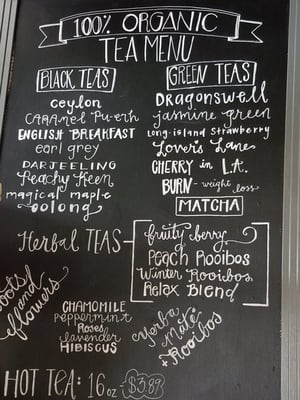 100% ORGANIC
TEA MENU
BLACK TEAS
Ceylon
CARAMEL Pu-erh
ENGLISH BREAKFAST
earl grey
DARJEELING
Peachy Keen
magical maple
oolong
GREEN TEAS
DRAGONSWELL
jasmine green
Long-island Strawberry
Lover's Lane
CHERRY in L.A.
BURN - weight loss
MATCHA
Herbal TEAS
fruity berry
PEACH ROOIBOS
Winter Rooibos
Relax Blend
roots and flowers
CHAMOMILE
peppermint
Roses
lavender
HIBISCUS
Yerba
Maté
+ Rooibos
HOT TEA: 16 oz - $3.89